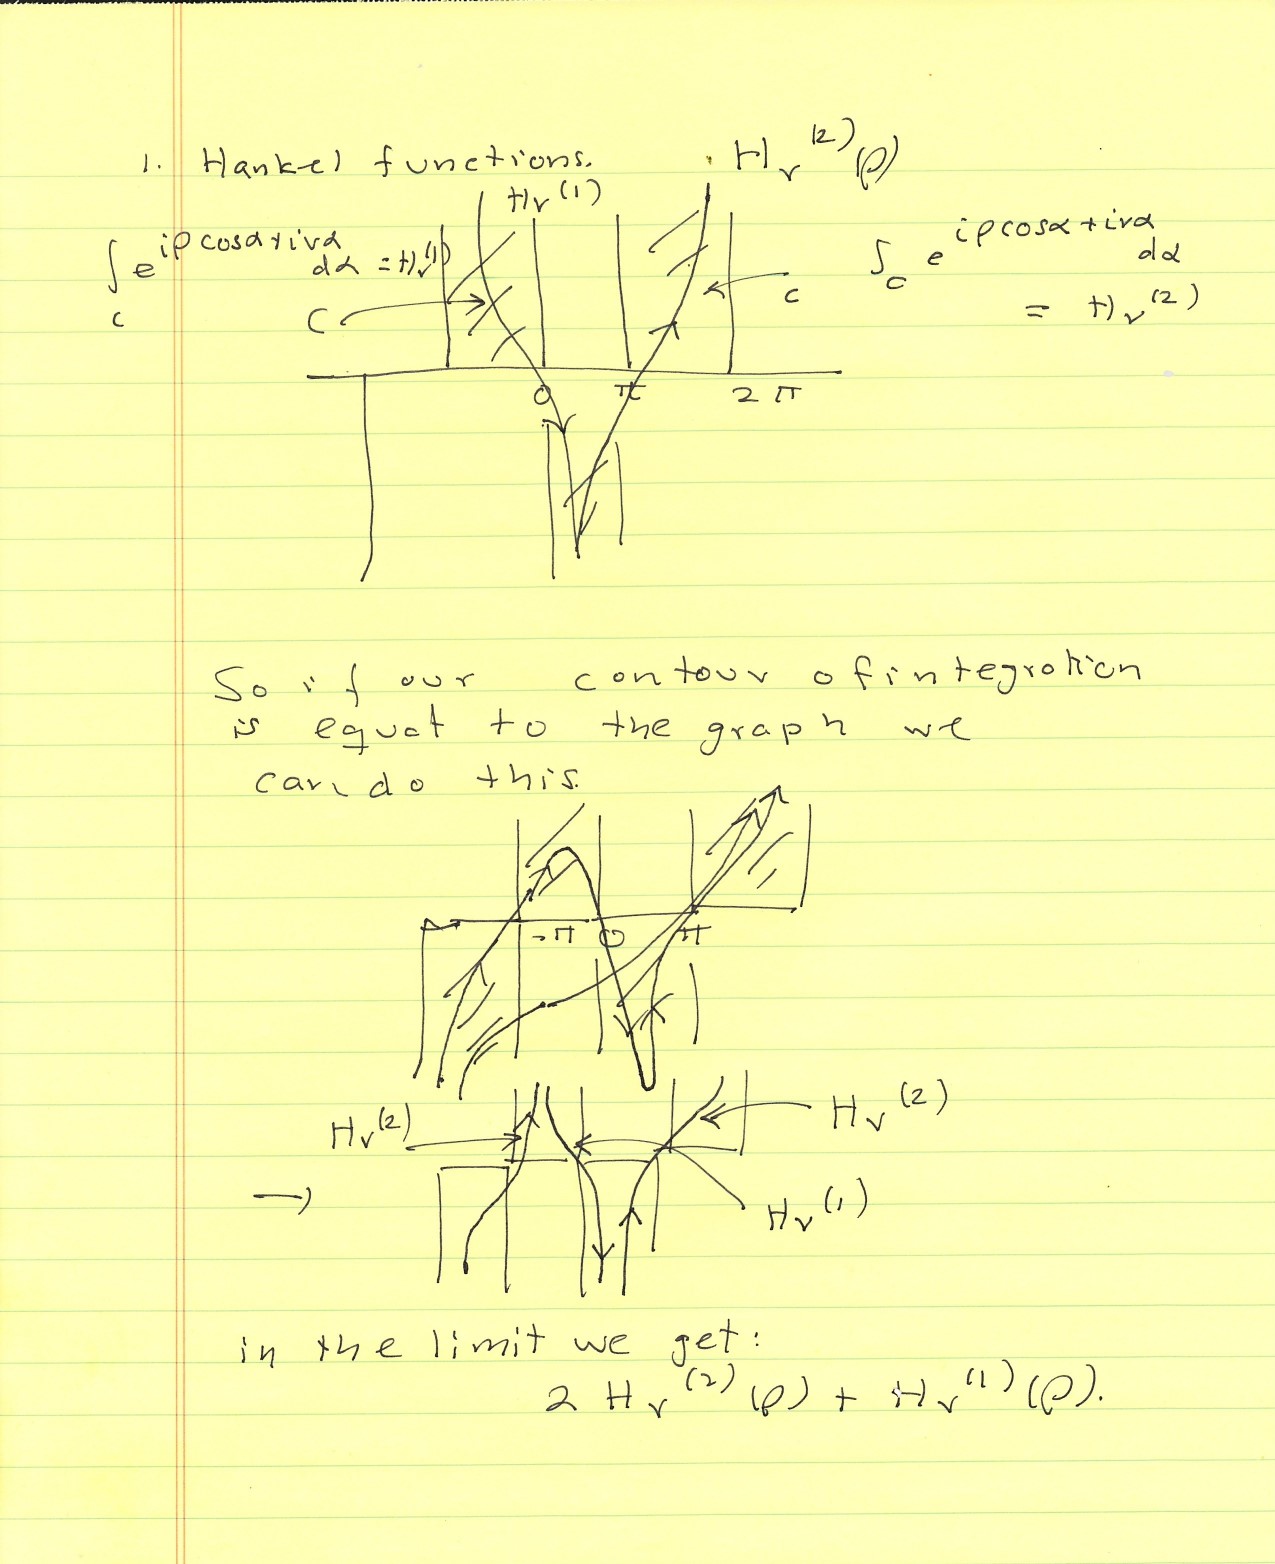 1. Hankel functions.
H_ν^(2)(ρ)
H_ν^(1)
∫_c e^{iρcosα+iνα} dα = H_ν^(1)
∫_c e^{iρcosα+iνα} dα
= H_ν^(2)
C
c
0 π 2π
So if our contour of integration
is equal to the graph we
can do this.
-π 0 π
H_ν^(2)
H_ν^(2)
→
H_ν^(1)
in the limit we get:
2 H_ν^(2)(ρ) + H_ν^(1)(ρ).